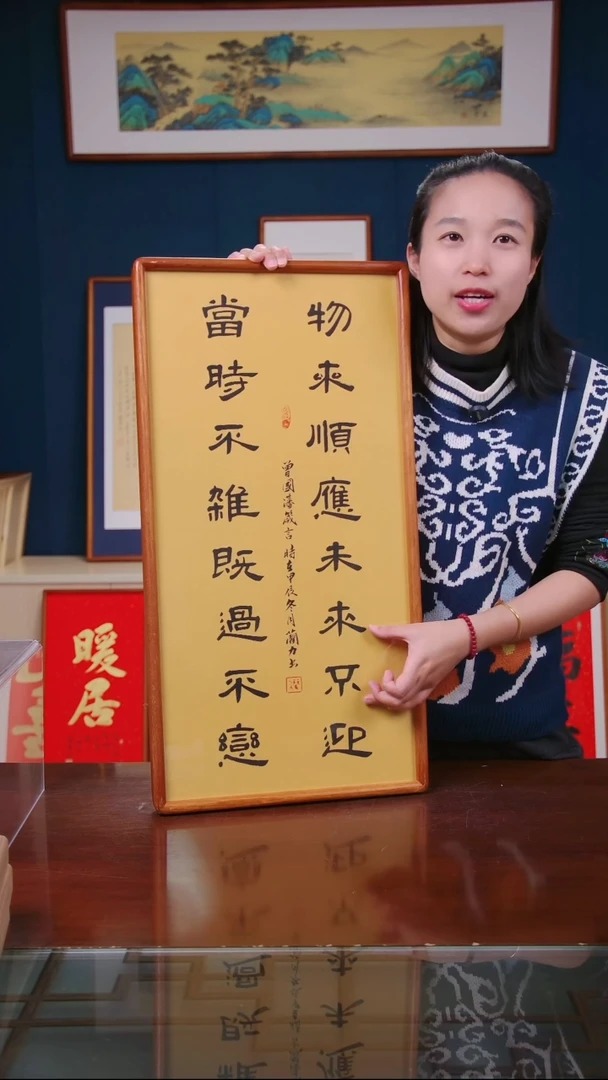 物來順應未來不迎
當時不雜既過不戀
曾國藩箴言 時在甲辰冬月蘭力书
暖居